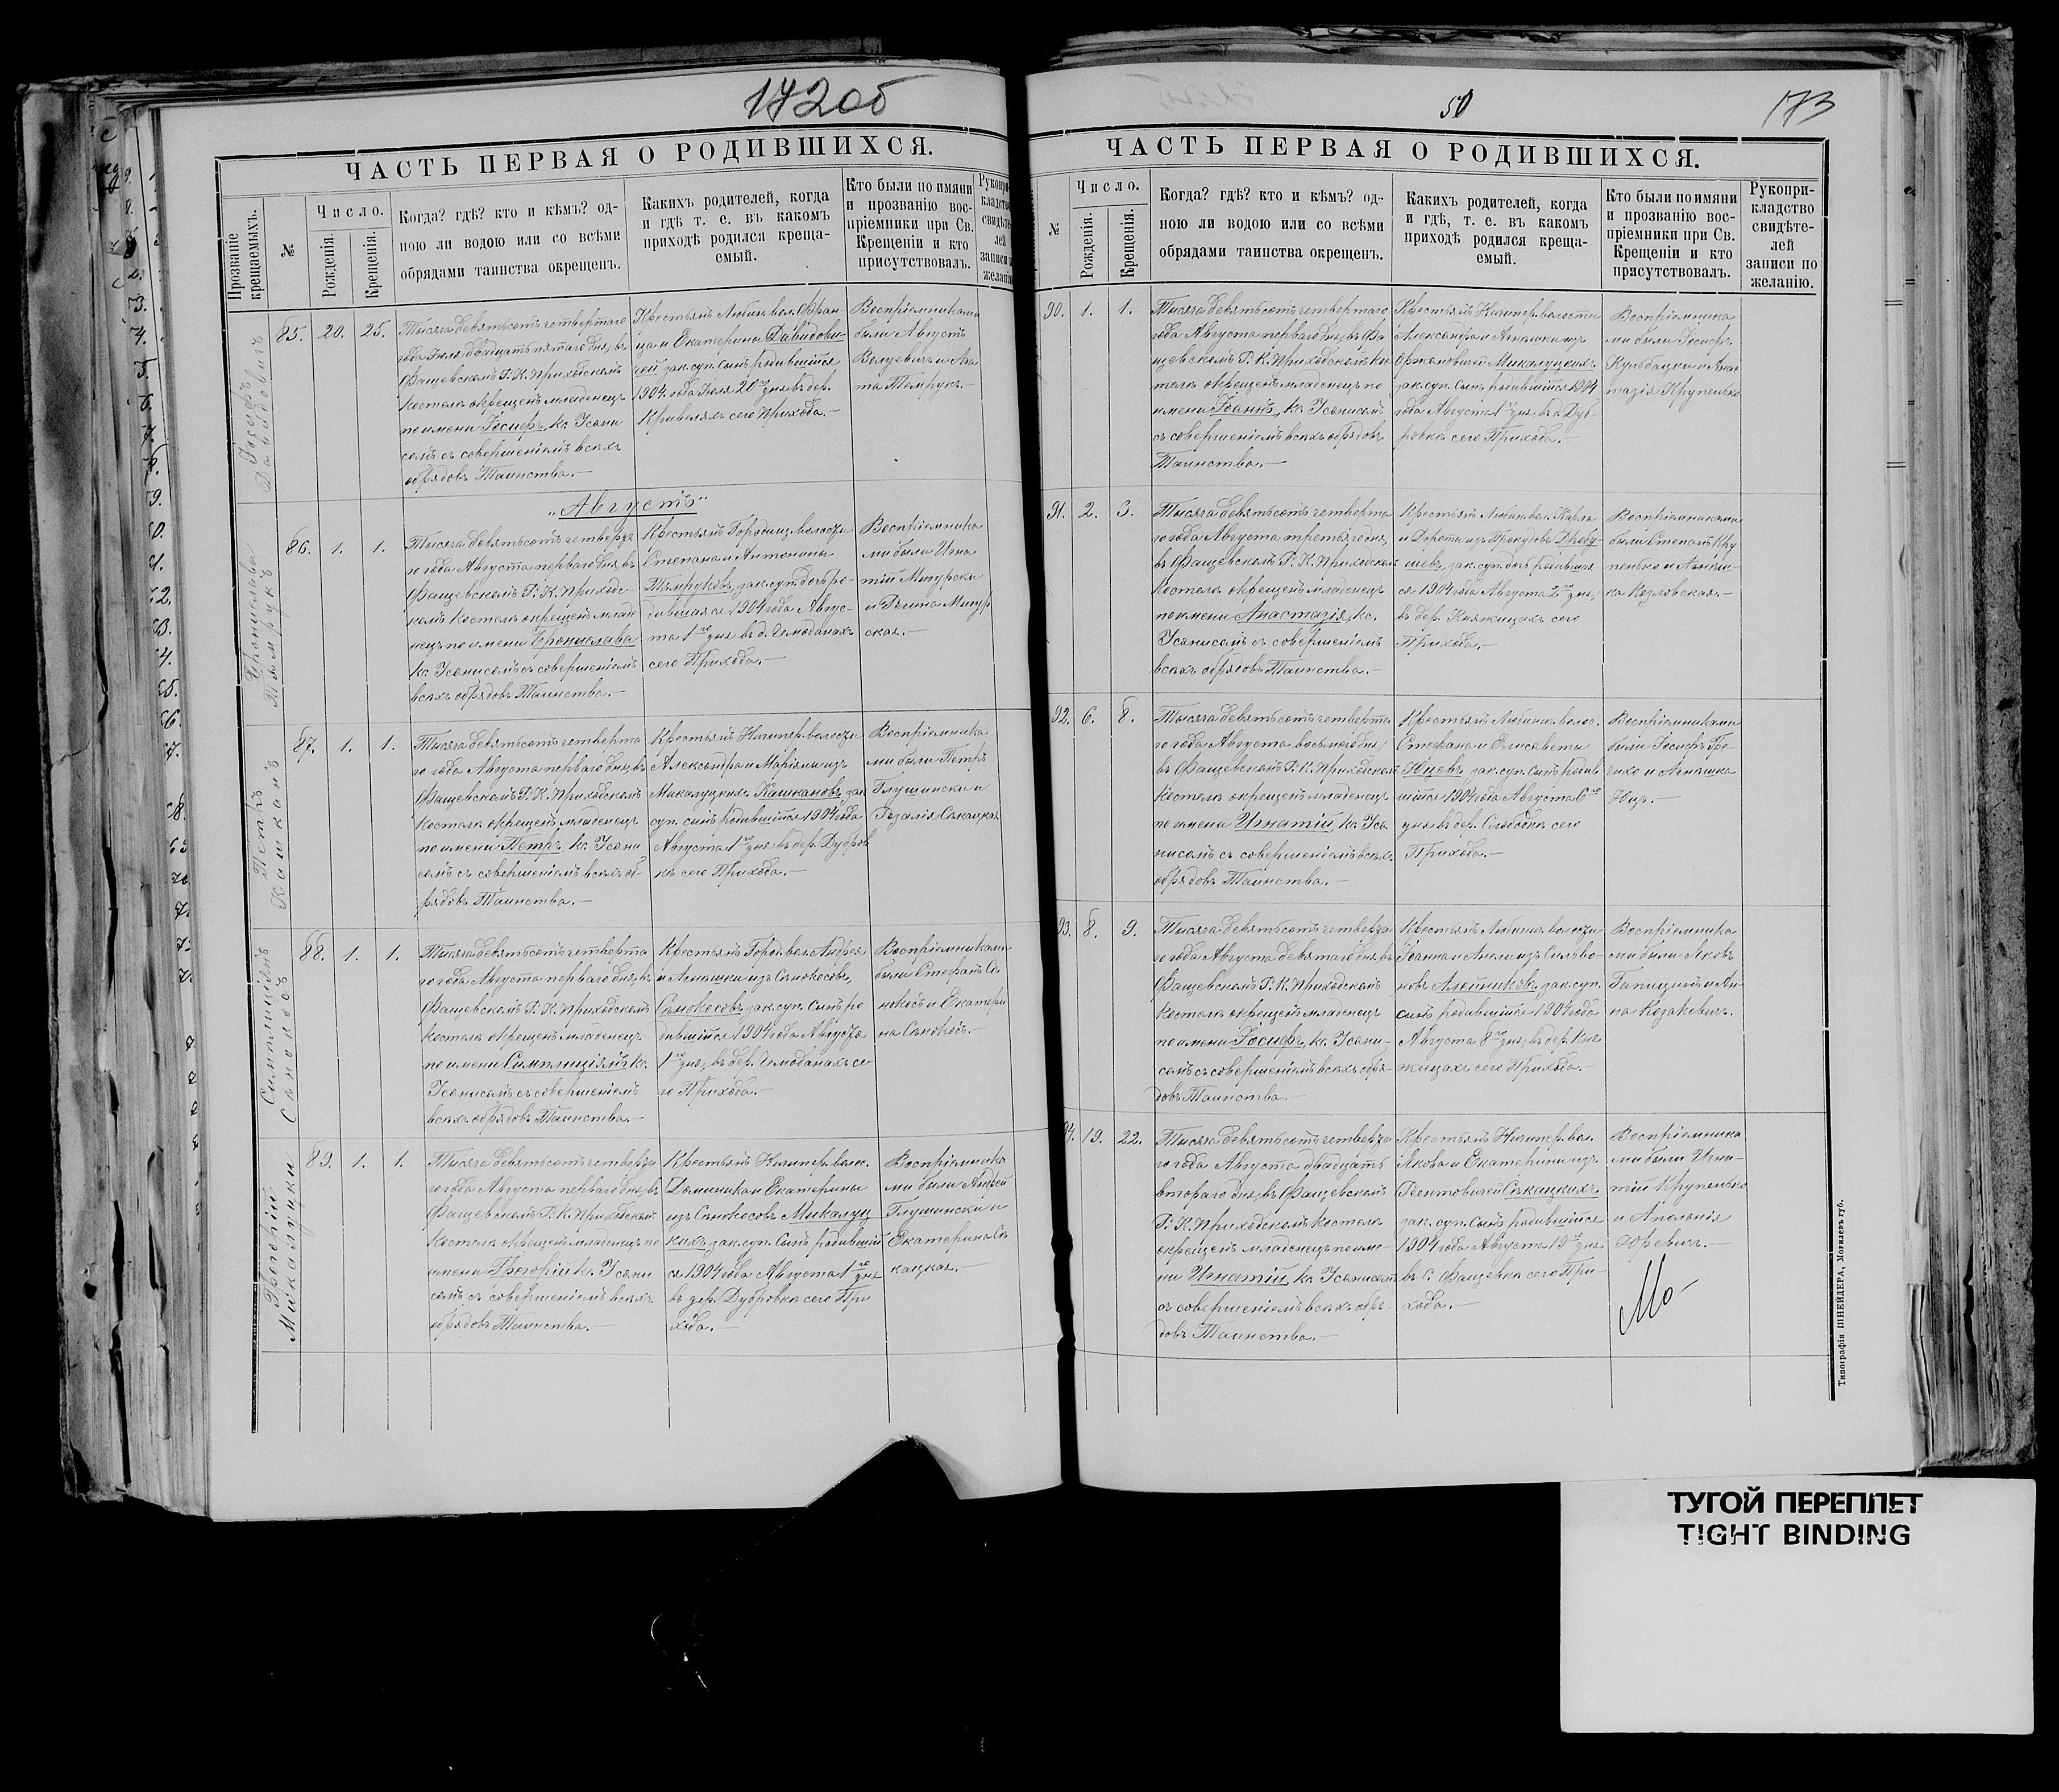 172об
ЧАСТЬ ПЕРВАЯ О РОДИВШИХСЯ.
Прозваніе крещаемыхъ.
№
Число.
Рожденія.
Крещенія.
Когда? гдѣ? кто и кѣмъ? од-
ною ли водою или со всѣми
обрядами таинства окрещенъ.
Какихъ родителей, когда
и гдѣ т. е. въ какомъ
приходѣ родился креща-
емый.
Кто были по имяни
и прозванію вос-
пріемники при Св.
Крещеніи и кто
присутствовалъ.
Іосифъ
Давидовичъ
85. 20. 25.
Тысяча девятьсотъ четвертаго
года Іюля двадцать пятаго дня, въ
Фащевскомъ Р. К. Приходскомъ
костелѣ окрещенъ младенецъ
по имени Іосифъ, кс. Усани
семъ съ совершеніемъ всѣхъ
обрядовъ Таинства.—
Крестьянъ Любин. вол. Фран-
ца и Екатерины Давидови-
чей зак. суп. сынъ родившійся
1904 года Іюля 20го дня въ дер.
Кривеляхъ сего Прихода.—
Воспріемниками
были Августъ
и Ага
та Темрукъ.—
„Августъ"
Брониславва
Тымрукъ
86. 1. 1.
Тысяча девятьсотъ четверта
го года Августа перваго дня, въ
Фащевскомъ Р. К. Приходс-
комъ костелѣ окрещенъ младе
нецъ по имени Брониславва
кс. Усанисомъ съ совершеніемъ
всѣхъ обрядовъ Таинства.—
Крестьянъ Городищ. волости
Степана и Антонины
Тымруковъ, зак. суп. дочь ро-
дившаяся 1904 года Авгус-
та 1го дня въ д. Чемоданахъ
сего Прихода.—
Воспріемника
ми были Игна
тій Мигурски
и Регина Мигур
ская.—
Петръ
Кашканъ
87. 1. 1.
Тысяча девятьсотъ четверта
го года Августа перваго дня, въ
Фащевскомъ Р. К. Приходскомъ
костелѣ окрещенъ младенецъ
по имени Петръ, кс. Усани
сомъ съ совершеніемъ всѣхъ об-
рядовъ Таинства.—
Крестьянъ Ничипер. волости
Александра и Маріяны изъ
Микалуцкихъ Кашкановъ, зак
суп. сынъ родившійся 1904 года
Августа 1го дня въ дер. Дубров
кѣ сего Прихода.—
Воспріемника
ми были Петръ
Глушински и
Розалія Сѣкацкая
Симплиціянъ
Сѣнокосъ
88. 1. 1.
Тысяча девятьсотъ четверта
го года Августа перваго дня, въ
Фащевскомъ Р. К. Приходскомъ
костелѣ окрещенъ младенецъ
по имени Симплиціянъ кс.
Усанисомъ съ совершеніемъ
всѣхъ обрядовъ Таинства.—
Крестьянъ Город. вол. Андрея
и Агнешки изъ Сѣнокосовъ,
Сѣнокосовъ зак. суп. сынъ ро
дившійся 1904 года Августа
1го дня, въ дер. Чемоданахъ се
го Прихода.—
Воспріемниками
были Стефанъ Сѣ
нокосъ и Екатери
на Сѣнокосъ.—
Григорій
Микалуцки
89. 1. 1.
Тысяча девятьсотъ четверта
го года Августа перваго дня, въ
Фащевскомъ Р. К. Приходскомъ
костелѣ окрещенъ младенецъ по
имени Григорій кс. Усани
сомъ съ совершеніемъ всѣхъ
обрядовъ Таинства.—
Крестьянъ Ничипер. волос.
Доминика и Екатерины
изъ Сѣнокосовъ Микалуц
кихъ, зак. суп. сынъ родившій
ся 1904 года Августа 1го дня
въ дер. Дубровкѣ сего При
хода.—
Воспріемника
ми были Андрей
Глушински и
Екатерина Сѣ
кацкая.—
50
173
ЧАСТЬ ПЕРВАЯ О РОДИВШИХСЯ.
№
Число.
Рожденія.
Крещенія.
Когда? гдѣ? кто и кѣмъ? од-
ною ли водою или со всѣми
обрядами таинства окрещенъ.
Какихъ родителей, когда
и гдѣ, т. е. въ какомъ
приходѣ родился креща-
емый.
Кто были по имяни
и прозванію вос-
пріемники при Св.
Крещеніи и кто
присутствовалъ.
Рукопри-
кладство
свидѣте-
лей
записи по
желанію.
90. 1. 1.
Тысяча девятьсотъ четвертаго
года Августа перваго дня, въ Фа
щевскомъ Р. К. Приходскомъ ко
стелѣ окрещенъ младенецъ по
имени Іоаннъ, кс. Усанисомъ
съ совершеніемъ всѣхъ обрядовъ
Таинства.—
Крестьянъ Ничипер. волости
Александра и Агнешки изъ
Микалуцкихъ
зак. суп. сынъ родившійся 1904
года Августа 1го дня, въ д. Дуб-
ровкѣ сего Прихода.—
Воспріемника
ми были Іосифъ
Кульбацки и Анас
тазія Крупенько
91. 2. 3.
Тысяча девятьсотъ четверта
го года Августа третьяго дня,
въ Фащевскомъ Р. К. Приходскомъ
костелѣ окрещенъ младенецъ
по имени Анастазія, кс.
Усанисомъ съ совершеніемъ
всѣхъ обрядовъ Таинства.—
Крестьянъ Любин. вол. Карла
и Дороты изъ
зак. суп. дочь родившая
ся 1904 года Августа 2го дня,
въ дер. Княжицахъ сего
Прихода.—
Воспріемниками
были Степанъ Кру
пенько и Агнеш-
ка Козловская.—
92. 6. 8.
Тысяча девятьсотъ четверта
го года Августа восьмого дня,
въ Фащевскомъ Р. К. Приходском
костелѣ окрещенъ младенецъ
по имени Игнатій, кс. Уса
нисомъ съ совершеніемъ всѣхъ
обрядовъ Таинства.—
Крестьянъ Любинш. волос.
Стефана и Елисаветы
Юцевъ, зак. суп. сынъ родив
шійся 1904 года Августа 6го
дня въ дер. Слободкѣ сего
Прихода.—
Воспріемниками
были Іосифъ Гре-
чихо и Агнешка
Юць.—
93. 8. 9.
Тысяча девятьсотъ четверта
го года Августа девятаго дня, въ
Фащевскомъ Р. К. Приходскомъ
костелѣ окрещенъ младенецъ
по имени Іосифъ, кс. Усани-
сомъ съ совершеніемъ всѣхъ обря-
довъ Таинства.—
Крестьянъ Любинш. волости
Іоанна и Анели изъ Сильво-
новъ Алейниковъ, зак. суп.
сынъ родившійся 1904 года
Августа 8го дня, въ дер. Кня
жицахъ сего Прихода.—
Воспріемника
ми были Яковъ
Гапицинъ и Ан-
на Козакевичъ.
94. 19. 22.
Тысяча девятьсотъ четверта
го года Августа двадцать
втораго дня, въ Фащевскомъ
Р. К. Приходскомъ костелѣ
окрещенъ младенецъ по име-
ни Игнатій, кс. Усанисомъ
съ совершеніемъ всѣхъ обря-
довъ Таинства.—
Крестьянъ Ничипер. вол.
Якова и Екатерины изъ
Сѣкацкихъ,
зак. суп. сынъ родившійся
1904 года Августа 19го дня
въ с. Фащевкѣ сего При-
хода.—
Воспріемника
ми были Игна-
тій Крупенько
и Аполонія
Юревичъ.—
Типографія ШНЕЙДЕРА, Могилевъ губ.
ТУГОЙ ПЕРЕПЛЕТ
TIGHT BINDING